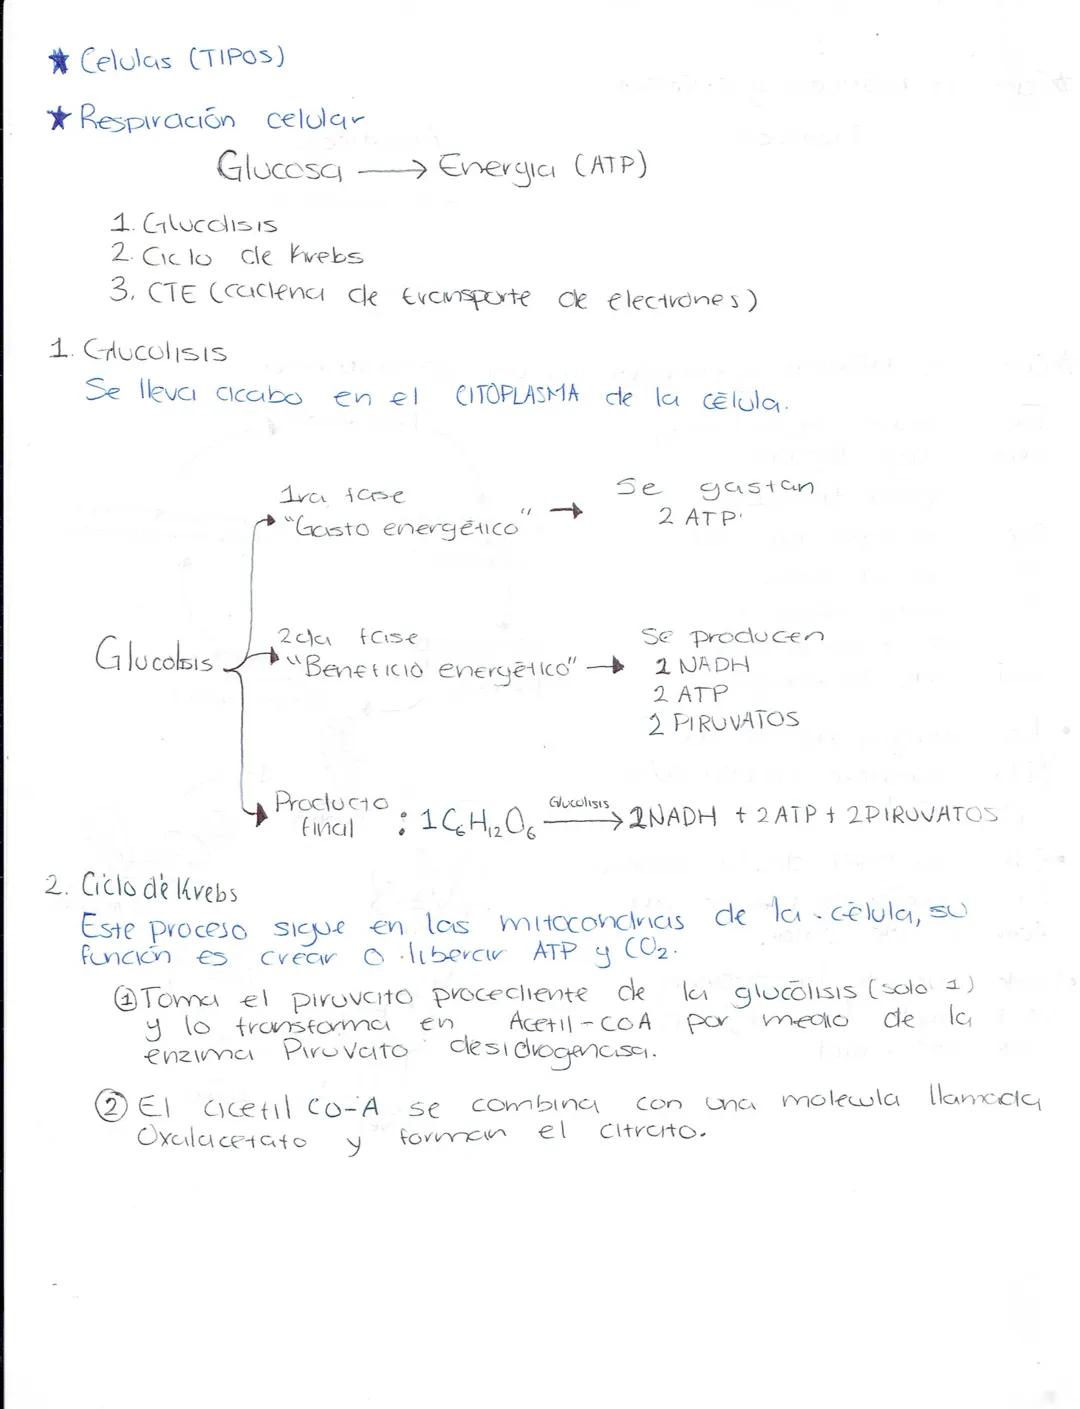 ★ Celulas (TIPOS)
★ Respiración celular
Glucosa → Energia (ATP)
1. Glucolisis
2. Ciclo de Krebs
3. CTE (cadena de transporte de electrones)
1. Glucolisis
Se lleva acabo en el CITOPLASMA de la célula.
1ra fase
"Gasto energético" → Se gastan
2 ATP.
Glucolsis
2da fase
"Beneficio energético" → Se producen
2 NADH
2 ATP
2 PIRUVATOS
Producto final : 1 C6H12O6 Glucolisis → 2NADH + 2 ATP + 2PIRUVATOS
2. Ciclo de Krebs
Este proceso sigue en las mitocondrias de la célula, su
función es crear o liberar ATP y CO2.
① Toma el piruvato procediente de la glucólisis (solo 1)
y lo transforma en Acetil-COA por medio de la
enzima Piruvato desidrogenasa.
② El acetil CO-A se combina con una molecula llamada
Oxalacetato y forman el citrato.